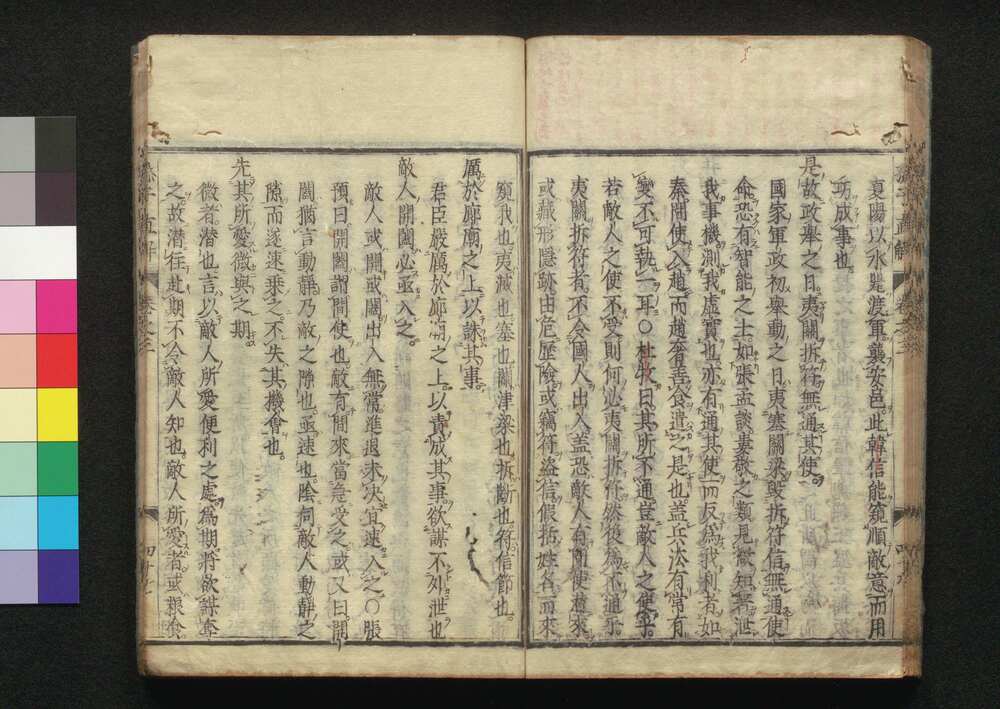 夏陽以木罌渡軍襲安邑此韓信能窺順敵意而用
功成事也
是故政舉之日夷關拆符無通其使
國家軍政初舉動之日夷塞關梁毀拆符信無通使
命恐有智能之士如張孟談婁敬之類見微知著泄
我事機測我虛實也亦有通其使而反爲我利者如
秦間使入趙而趙奢善食遣之是也蓋兵法有常有
變不可執一耳〇杜牧曰其所不通豈敵人之使乎
若敵人之使不受則何必夷關拆符然後爲不通乎
夷關拆符者不令國人出入蓋恐敵人有間使潛來
或藏形隱跡由危歷險或竊符盜信假托姓名而來
窺我也夷滅也塞也關津梁也拆斷也符信節也
厲於廊廟之上以誅其事
君臣嚴厲於廊廟之上以責成其事欲謀不外泄也
敵人開闔必亟入之
敵人或開或闔出入無常進退未決宜速入之〇張
預曰開闔謂間使也敵有間來當急受之或又曰開
闔猶言動靜乃敵之隙也亟速也陰伺敵人動靜之
隙而遂速乘之不失其機會也
先其所愛微與之期
微者潜也言以敵人所愛便利之處爲期將欲謀奪
之故潜往赴期不令敵人知也敵人所愛者或粮食